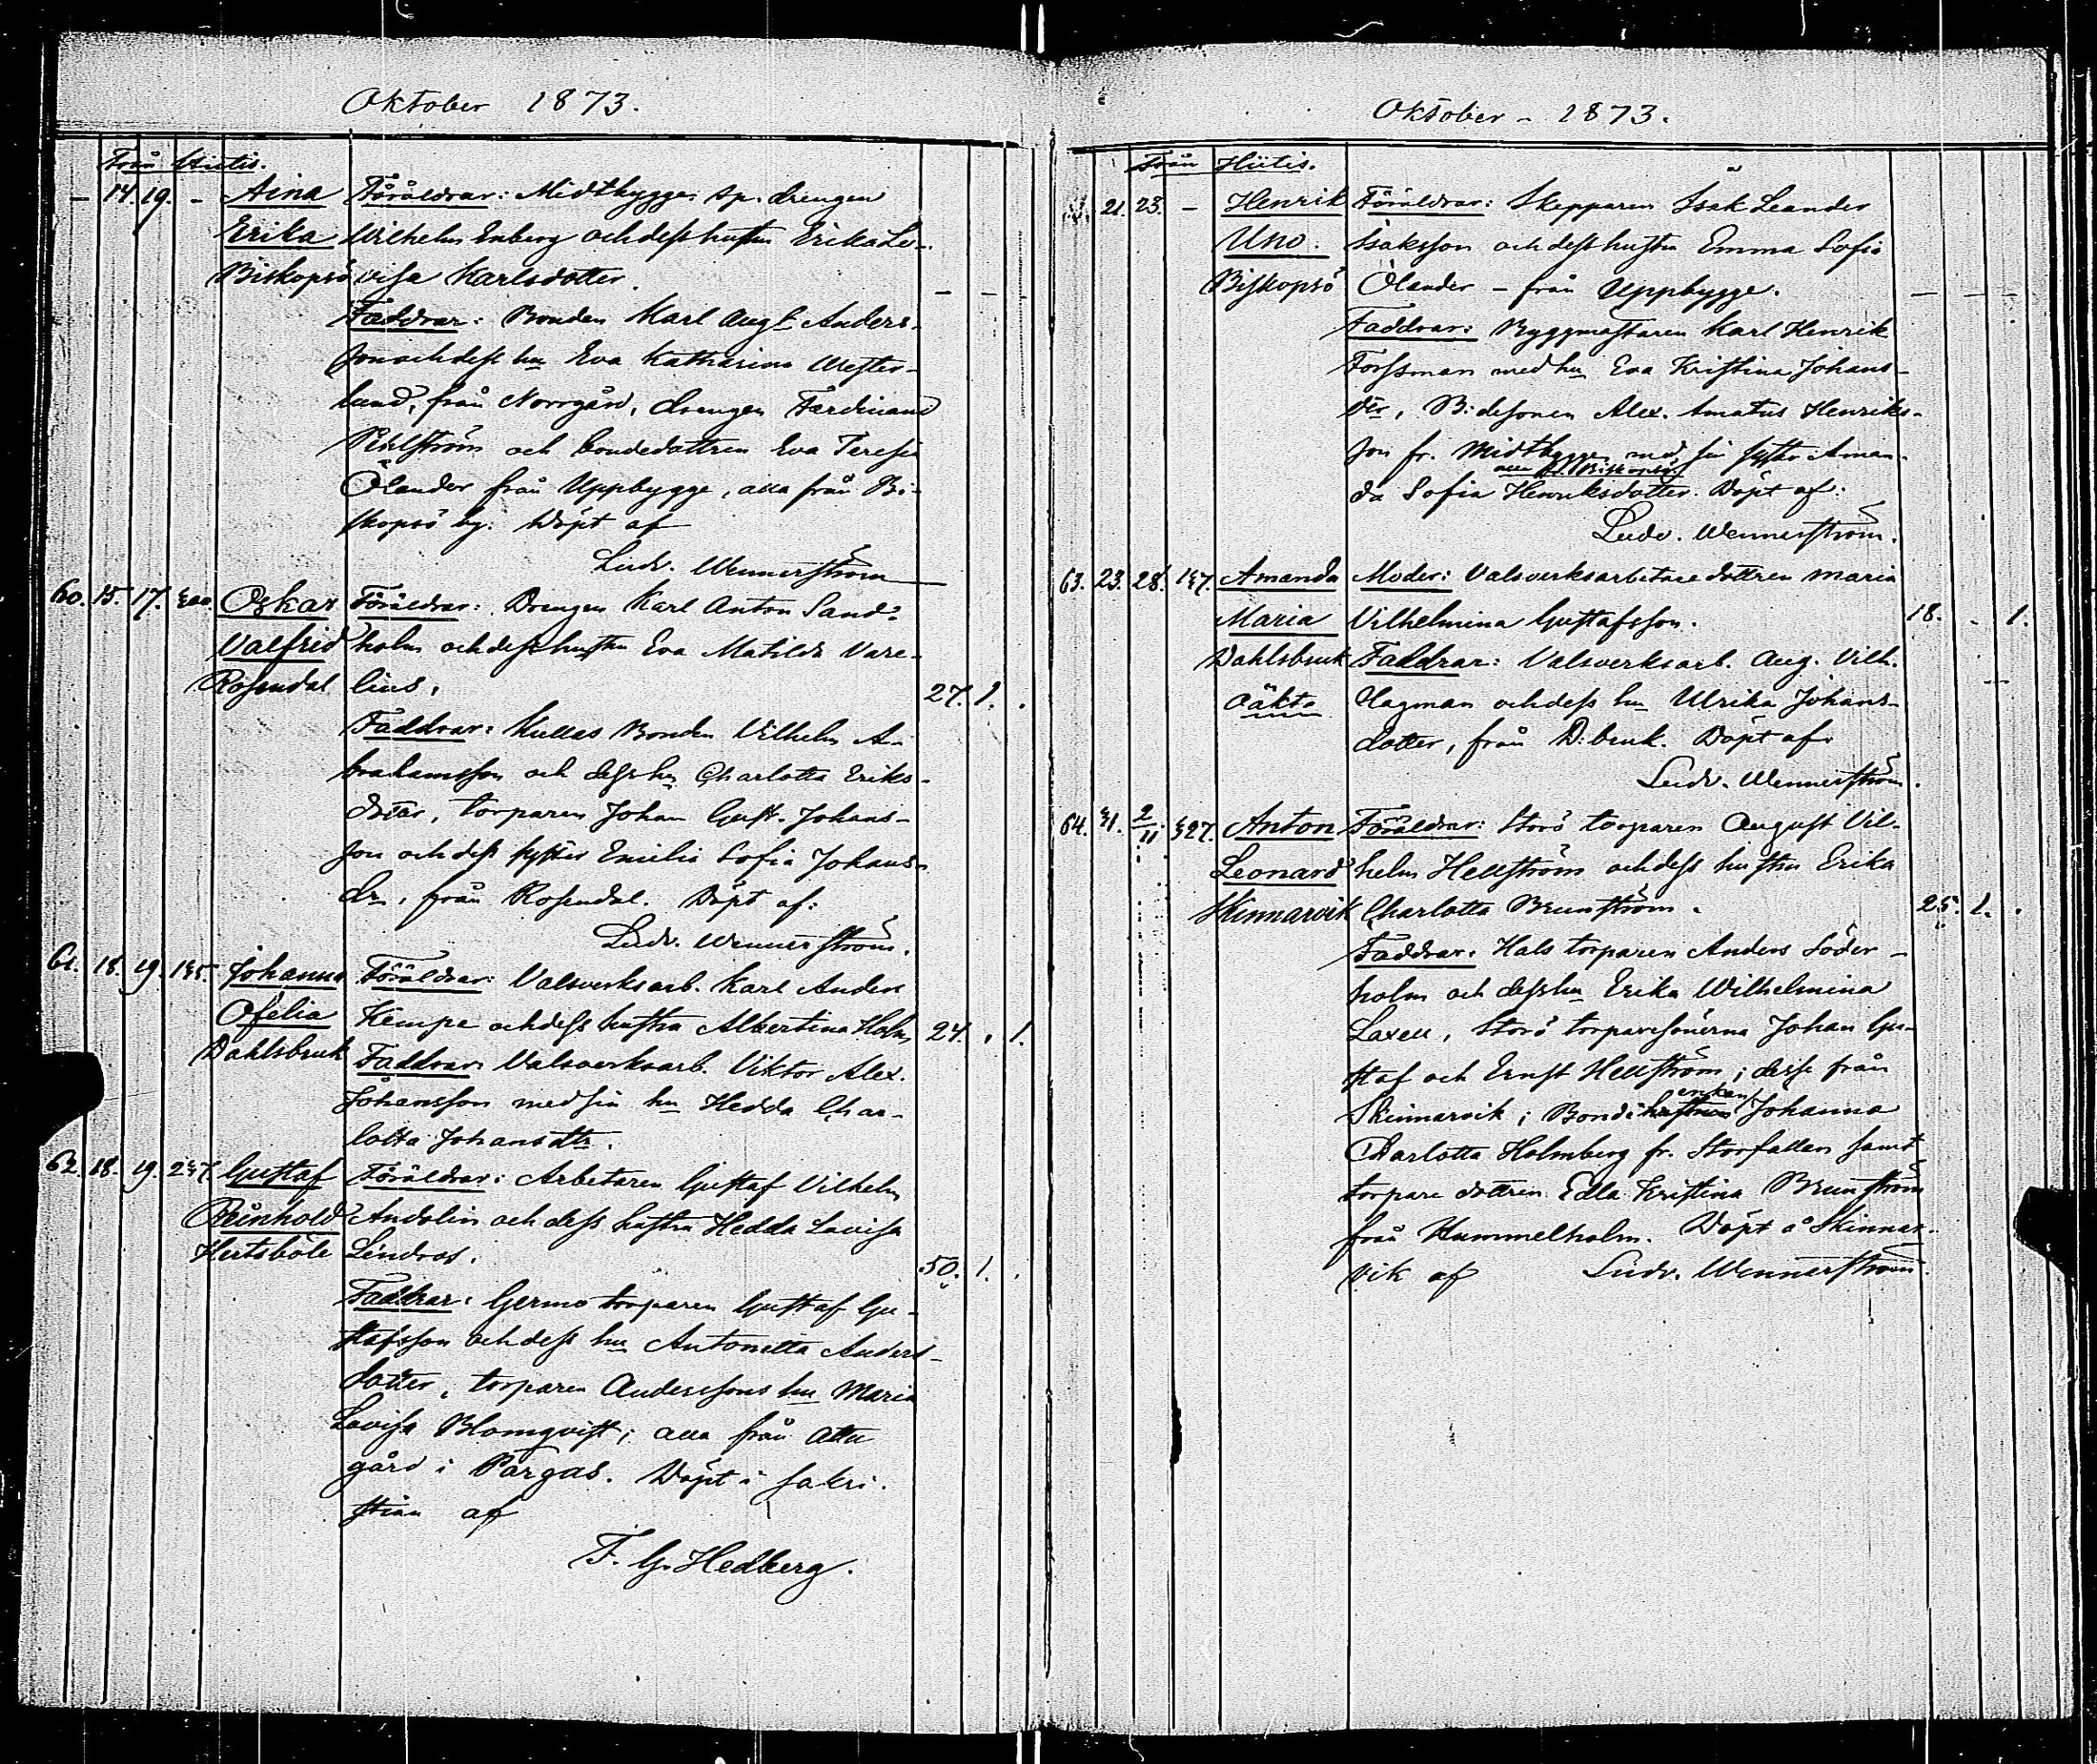 Oktober 1873.
Från Hiitis.
- 14. 19. - Aina Föräldrar: Midtbygge sp. drengen
Erika Wilhelm Enberg och dess hustru Erika Lo-
Biskopsö visa Karlsdotter. - - -
Faddrar: Bonden Karl Aug. Anders-
son och dess hu Eva Katharina Wester-
lund, från Norrgård, drengen Ferdinand
och bondedottren Eva Teresia
Ölander från Uppbygge, alla från Bi-
skopsö by. Döpt af
Ludv. Wennerström
60. 15. 17. Oskar Föräldrar: Drengen Karl Anton Sand-
Valfrid holm och dess hustru Eva Matilda Vare-
Rosendal lius. 27. 1. .
Faddrar: Kullas Bonden Vilhelm A-
brahamsson och dess hu Charlotta Eriks-
dotter, torparen Johan Gust. Johans-
son och dess syster Emilia Sofia Johans-
dr, från Rosendal. Döpt af:
Ludv. Wennerström.
61. 18. 19. 135. Johanna Föräldrar: Valsverksarb. Karl Anders
Ofelia Kempe och dess hustru Albertina Holm 24. . 1.
Dahlsbruk Faddrar: Valsverksarb. Viktor Alex.
Johansson med sin hu Hedda Char-
lotta Johansdtr.
62. 18. 19. 237. Gustaf Föräldrar: Arbetaren Gustaf Vilhelm
Reinhold Andolin och dess hustru Hedda Lovisa
Hertsböle Lindros. 50. 1. .
Faddrar: Germo torparen Gustaf Gu-
stafsson och dess hu Antonetta Anders-
dotter, torparen Anderssons hu Maria
Lovisa Blomqvist; alla från Attu
gård i Pargas. Döpt i sakri-
stian af
F. G. Hedberg.
Oktober - 1873.
Från Hiitis.
21. 23. - Henrik Föräldrar: Skepparen Isak Leander
Uno. Isaksson och dess hustru Emma Sofia
Biskopsö Ölander - från Uppbygge. - - -
Faddrar: Byggmästaren Karl Henrik
Forssman med hu Eva Kristina Johans-
dtr, B:desonen Alex. Amatus Henriks-
son fr. Midtbygge med sin syster Aman-
alla fr. Biskopsö
da Sofia Henriksdotter. Döpt af:
Ludv. Wennerström.
63. 23. 28. 137. Amanda Moder: Valsverksarbetare dottren Maria
Maria Vilhelmina Gustafsson. 18. - 1.
Dahlsbruk Faddrar: Valsverksarb. Aug. Vilh.
oäkta Hagman och dess hu Ulrika Johans-
dotter, från D:bruk. Döpt af:
Ludv. Wennerström.
64. 31. 2/11 327. Anton Föräldrar: Storö torparen August Vil-
Leonard helm Hellström och dess hustru Erika
Skinnarvik Charlotta Brunström. 25. 1. .
Faddrar: Hals torparen Anders Söder-
holm och dess hu Erika Wilhelmina
Laxell, Storö torparesönerna Johan Gu-
staf och Ernst Hellström; desse från
enkan
Skinnarvik; Bonde hustrun Johanna
Charlotta Holmberg fr. Storfallan samt
torpare dottren Edla Kristina Brunström
från Hummelholm. Döpt å Skinnar-
vik af Ludv. Wennerström.